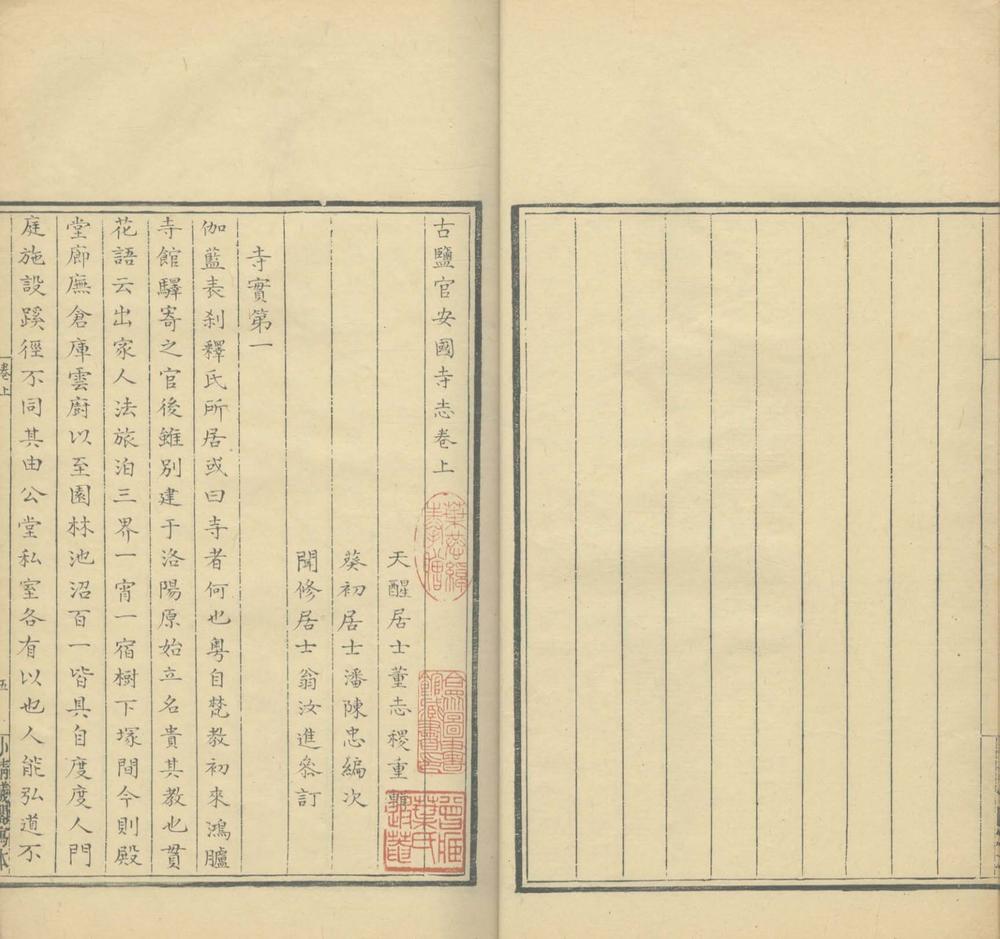 古鹽官安國寺志卷上
天醒居士董志稷重
葵初居士潘陳忠編次
聞修居士翁汝進叅訂
寺實第一
伽藍表刹釋氏所居或曰寺者何也粵自梵教初來鴻臚
寺館驛寄之官後雖別建于洛陽原始立名貴其教也貫
花語云出家人法旅泊三界一宵一宿樹下塚間今則殿
堂廊廡倉庫雲廚以至園林池沼百一皆具自度度人門
庭施設蹊徑不同其由公堂私室各有以也人能弘道不
卷上
五